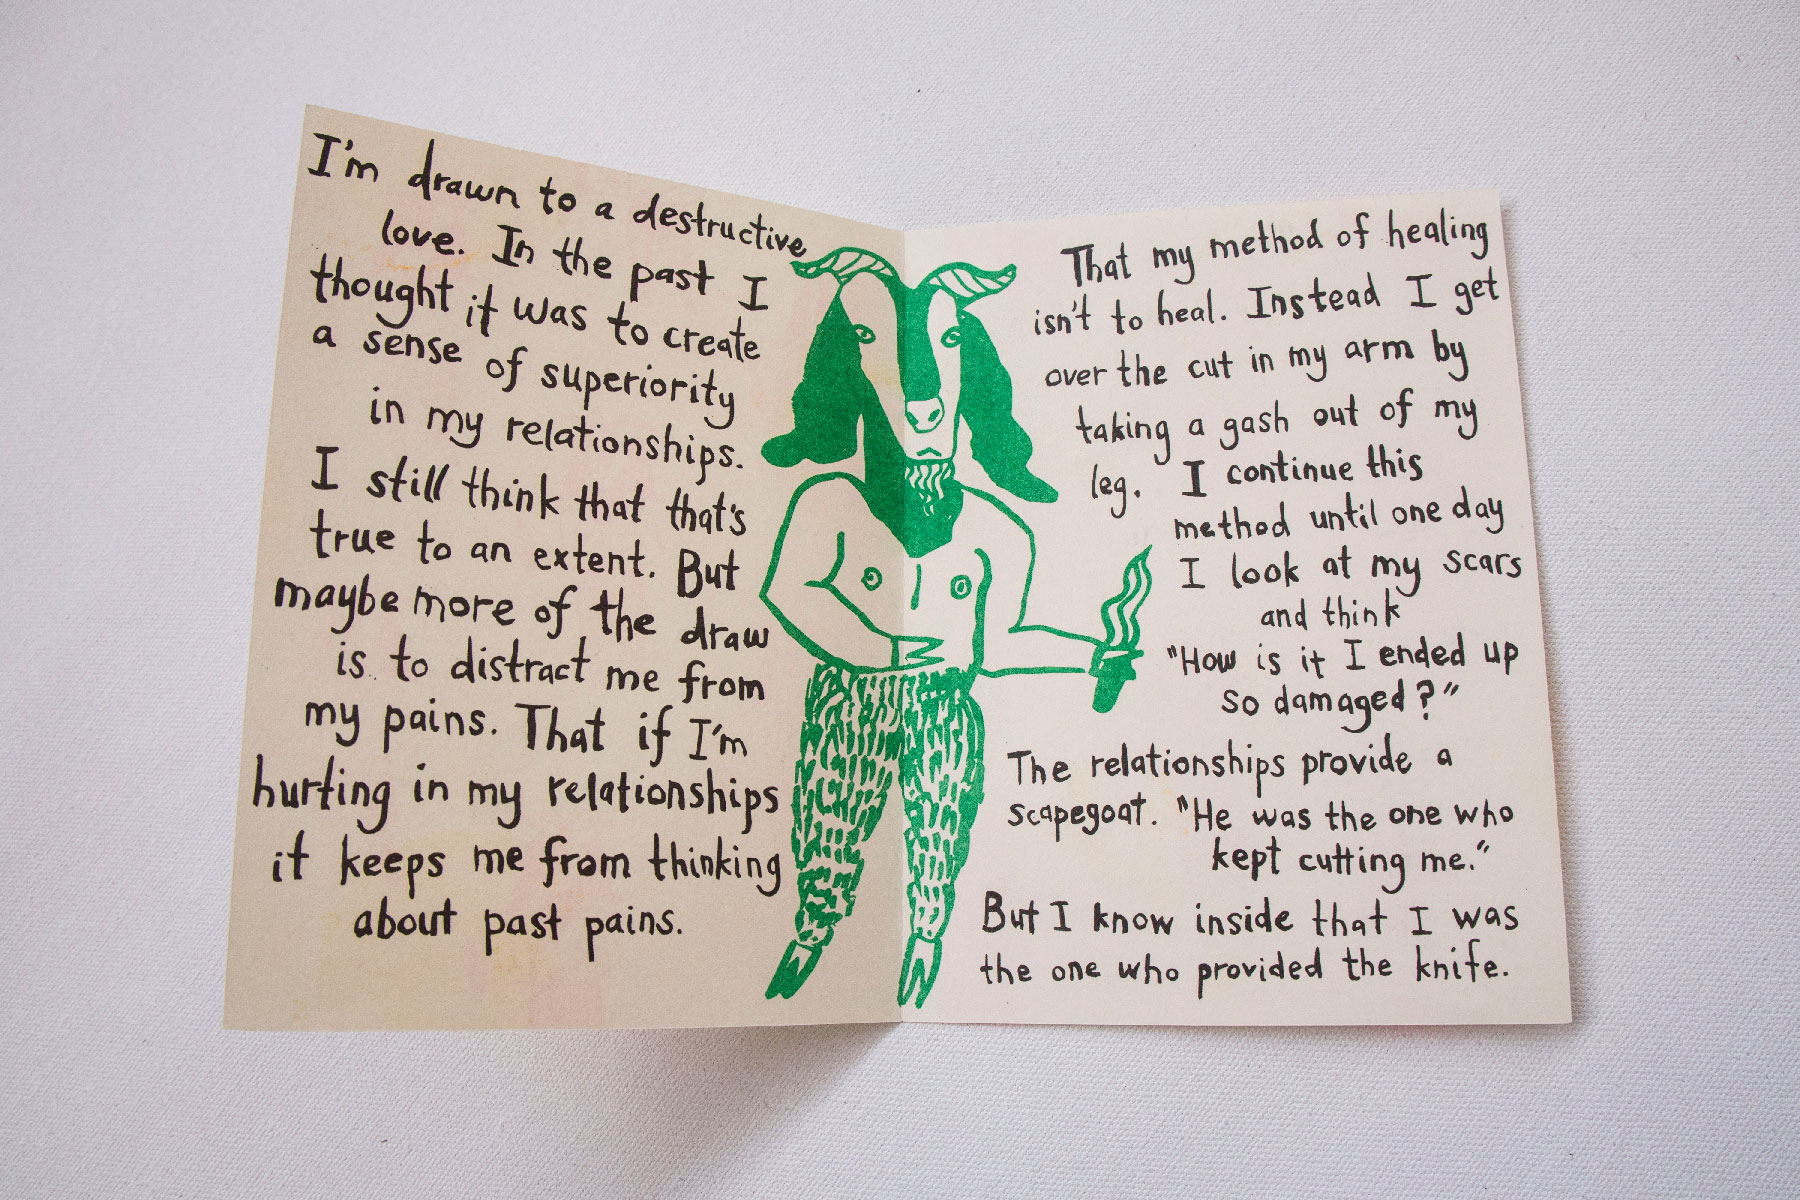 I'm drawn to a destructive
love. In the past I
thought it was to create
a sense of superiority
in my relationships.
I still think that that's
true to an extent. But
maybe more of the draw
is to distract me from
my pains. That if I'm
hurting in my relationships
it keeps me from thinking
about past pains.
That my method of healing
isn't to heal. Instead I get
over the cut in my arm by
taking a gash out of my
leg. I continue this
method until one day
I look at my scars
and think
"How is it I ended up
so damaged?"
The relationships provide a
scapegoat. "He was the one who
kept cutting me."
But I know inside that I was
the one who provided the knife.